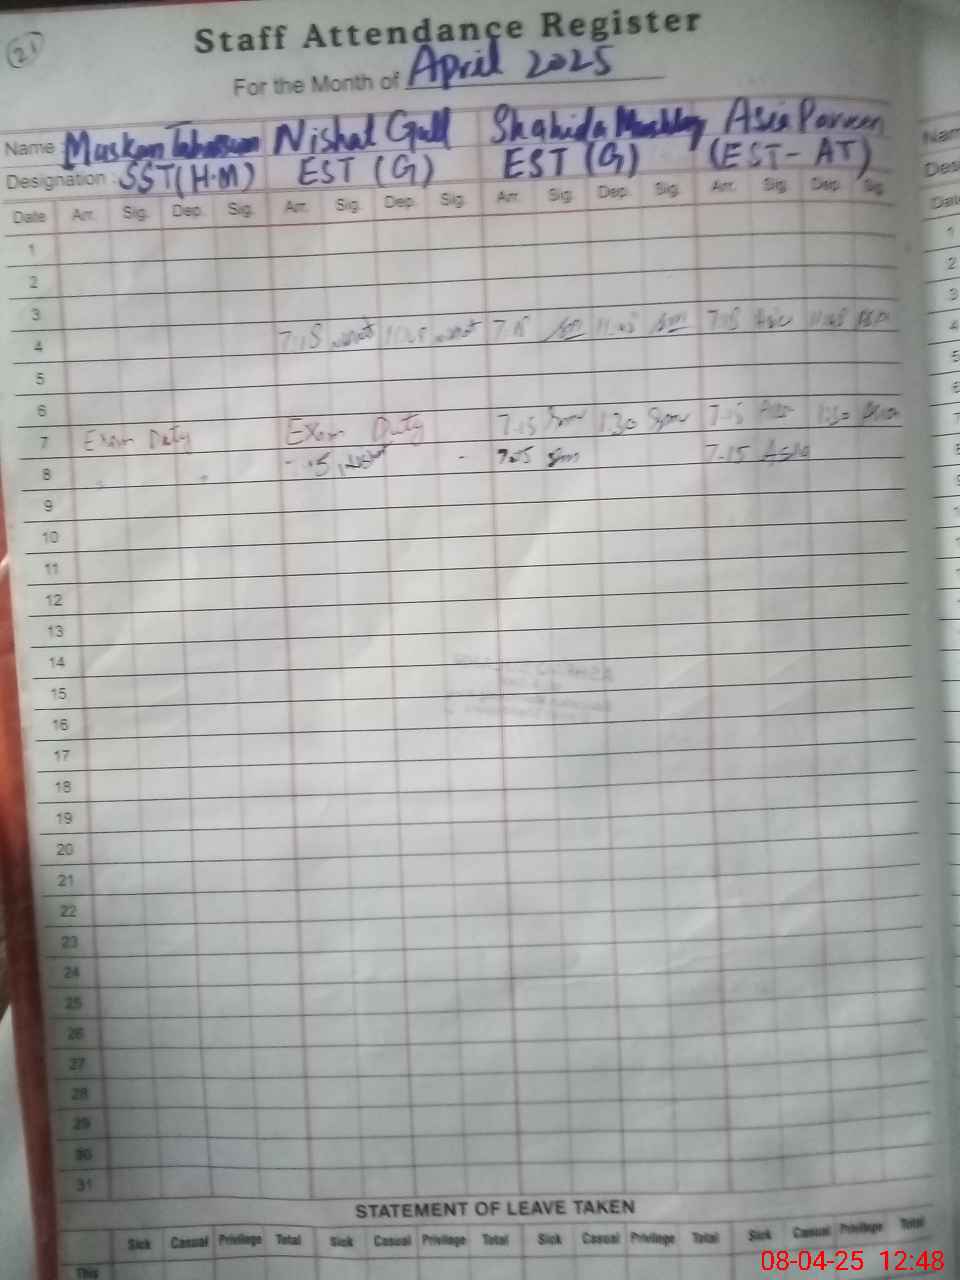 21
Staff Attendance Register
For the Month of April 2025
Name Muskan Tabassum Nishat Gull Shahida Asia Parveen
Designation SST (H.M) EST (G) EST (G) (EST-AT)
Date Arr. Sig. Dep. Sig. Arr. Sig. Dep. Sig. Arr. Sig. Dep. Sig. Arr. Sig. Dep. Sig.
1
2
3
4 7.15 11.45 7.15 11.45 7.15 Asia 11.45
5
6
7 Exam Duty Exam Duty 7-15 1:30 7-15 1:30
8 7-15 Asia
9
10
11
12
13
14
15
16
17
18
19
20
21
22
23
24
25
26
27
28
29
30
31
STATEMENT OF LEAVE TAKEN
Sick Casual Privilege Total Sick Casual Privilege Total Sick Casual Privilege Total Sick Casual Privilege Total
This
08-04-25 12:48